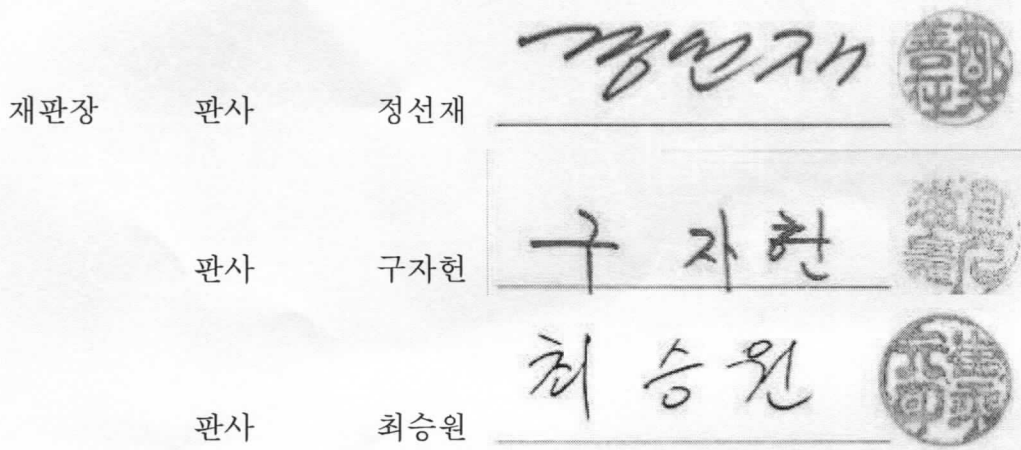 재판장 판사 정선재 정선재
판사 구자헌 구자헌
판사 최승원 최승원